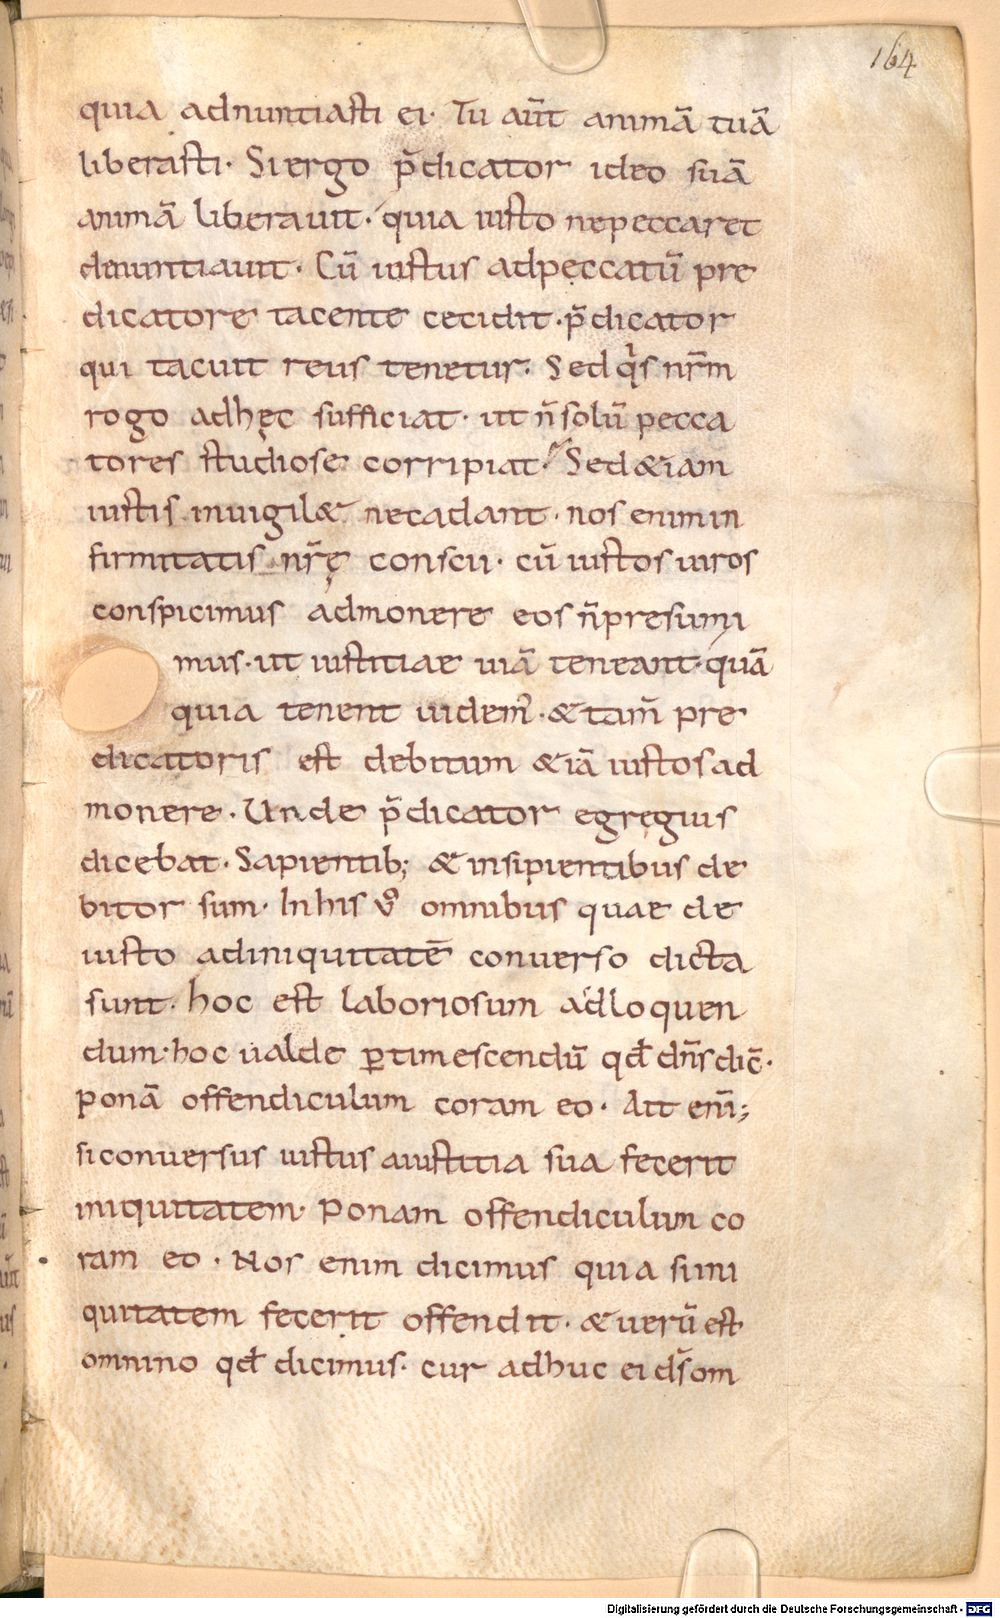 164
quia adnuntiasti ei. Tu aūt animā tuā
liberasti. Si ergo p̄dicator ideo suā
animā liberauit. quia iusto nepeccaret
denuntiauit. Cū iustus adpęccatū pre
dicatore tacente cecidit. p̄dicator
qui tacuit reus tenetur. Sed qⁱs nr̄m
rogo adhęc sufficiat. ut n̄ solū pecca
tores studiose corripiat. Sed &iam
iustis inuigil& necadant. nos enim in
firmitatis nr̄ę conscii. cū iustos uiros
conspicimus admonere eos n̄presumi
mus. ut iustitiae uiā teneant. quā
quia tenent uidem᷒. & tam̄ pre
dicatoris est debitum &iā iustos ad
monere. Unde p̄dicator egręgius
dicebat. Sapientib; & insipientibus de
bitor sum. In his v̊ omnibus quae de
iusto adiniquitatē conuerso dicta
sunt. hoc est laboriosum adloquen
dum. hoc ualde ꝑtimescendū qđ dn̄s dic̄.
ponā offendiculum coram eo. Ait eni̅;
si conuersus iustus aiustitia sua fecerit
iniquitatem. ponam offendiculum co
ram eo. Nos enim dicimus quia si ini
quitatem fecerit offendit. & uerū est
omnino qđ dicimus. cur adhuc ei d̄s om
Digitalisierung gefördert durch die Deutsche Forschungsgemeinschaft - DFG